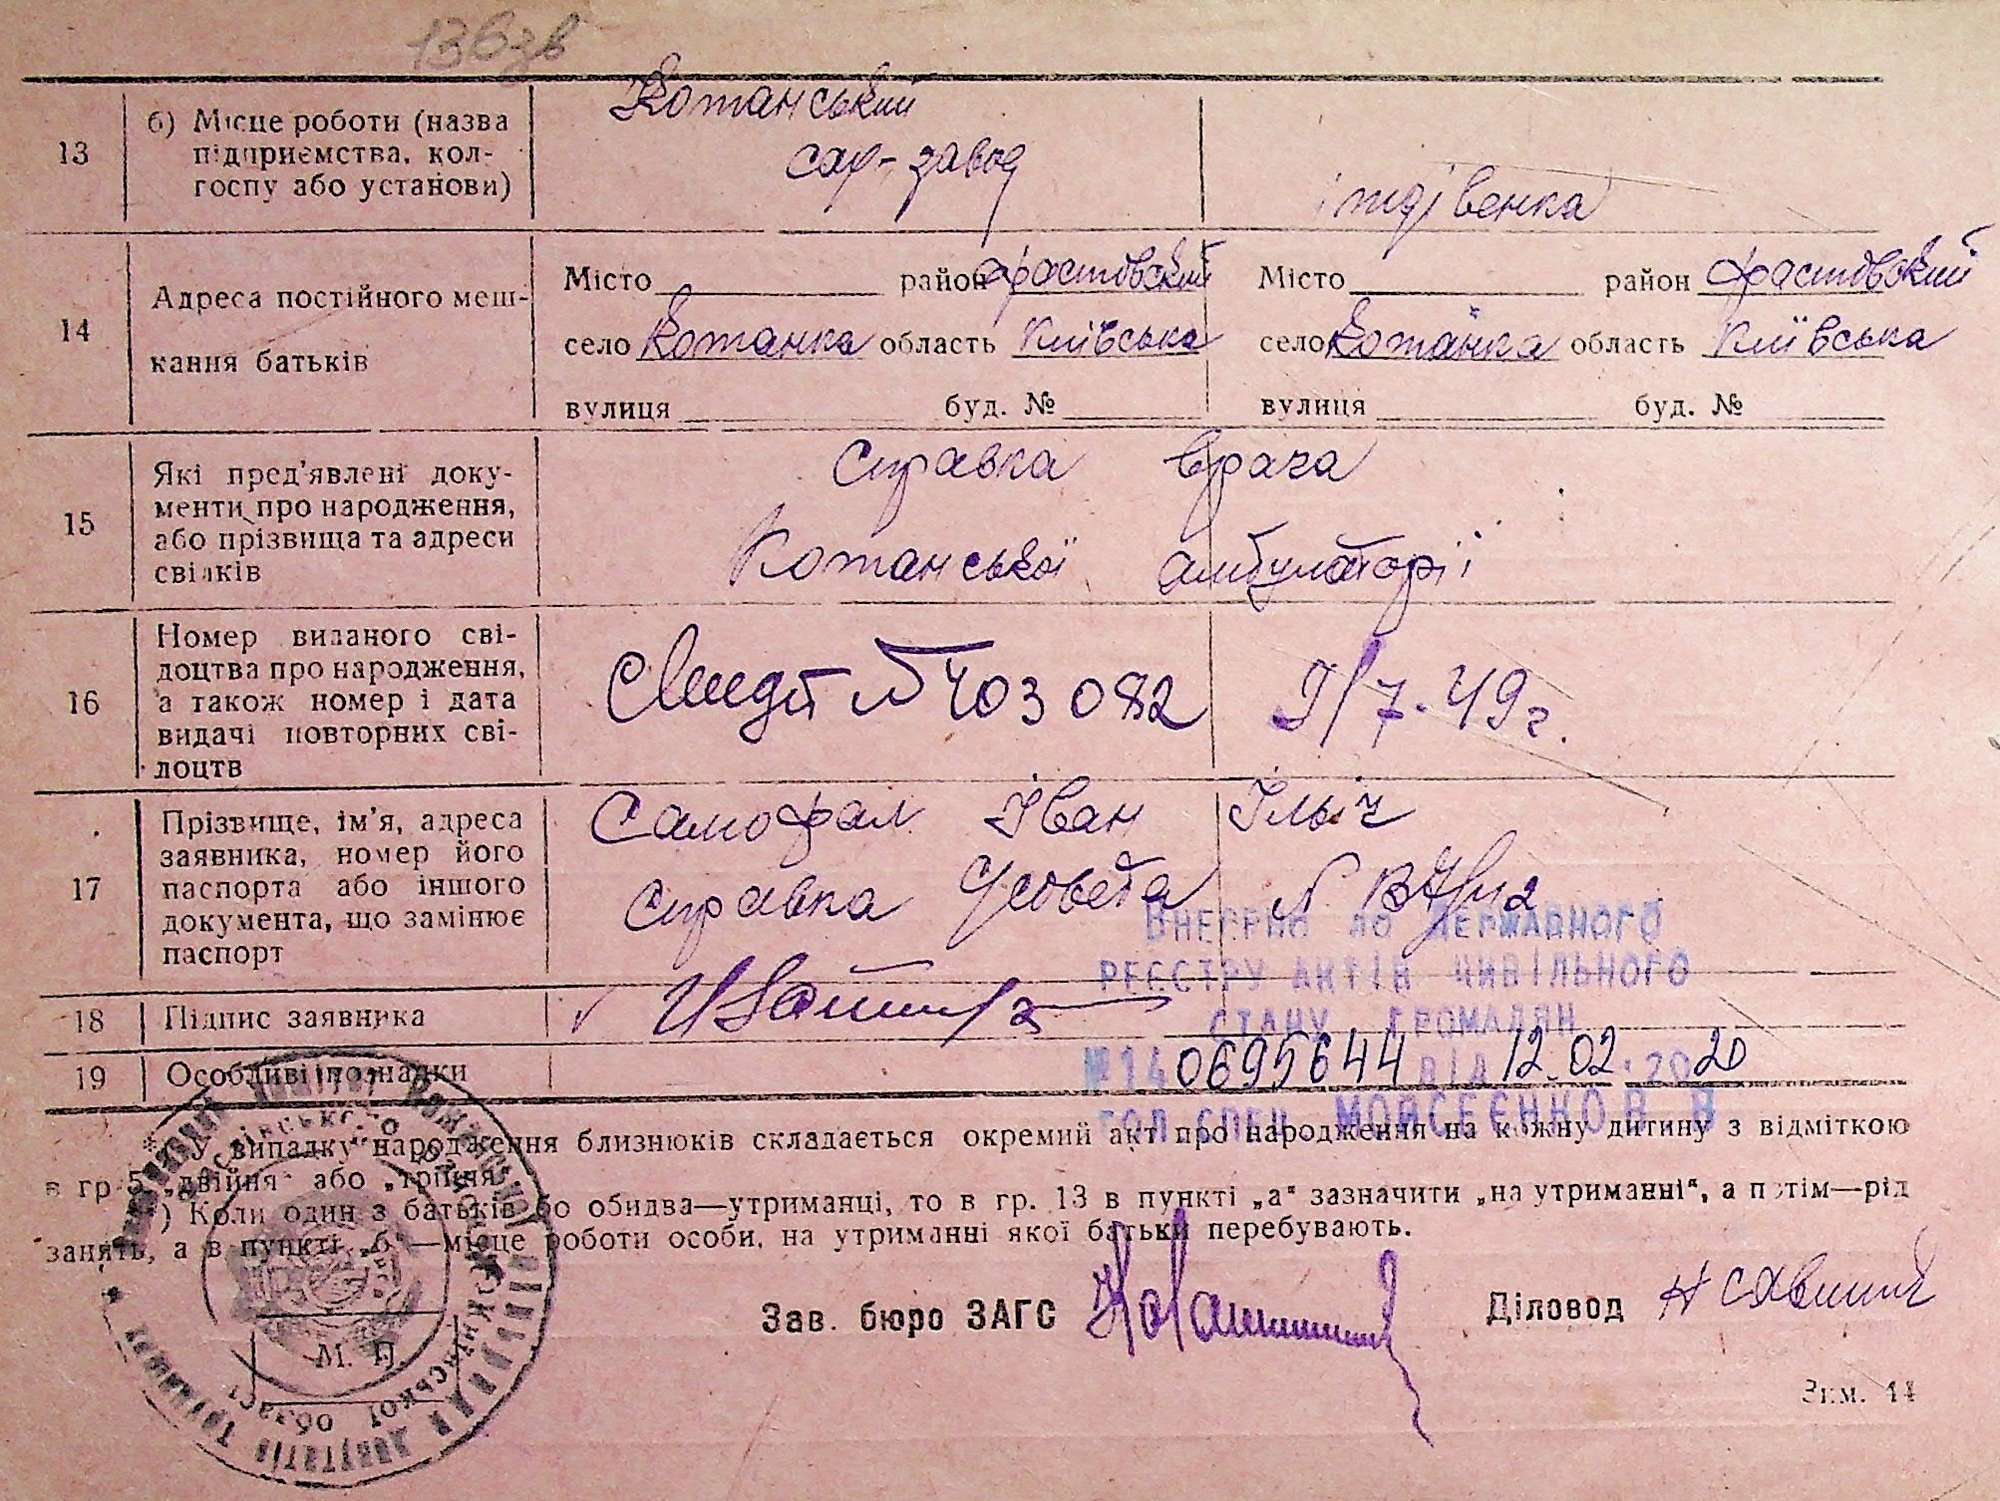 136зв
13
б) Місце роботи (назва підприємства, колгоспу або установи)
Кожанський
сах-завод
14
Адреса постійного мешкання батьків
Місто район Фастовский
село Кожанка область Київська
вулиця буд. №
Місто район Фастовский
село Кожанка область Київська
вулиця буд. №
15
Які пред'явлені документи про народження, або прізвища та адреси свідків
Справка врача
Кожанської амбулаторії
16
Номер виданого свідоцтва про народження, а також номер і дата видачі повторних свідоцтв
№ 403082
7.49г.
17
Прізвище, ім'я, адреса заявника, номер його паспорта або іншого документа, що замінює паспорт
Самофал Іван Ільіч
справка с/совета №
18
Підпис заявника
19
Особливі познадки
ВНЕСЕНО ДО ДЕРЖАВНОГО
РЕЄСТРУ АКТІВ ЦИВІЛЬНОГО
СТАНУ ГРОМАДЯН
№140695644 ВІД 12.02.2020
ГОЛ СПЕЦ МОЙСЕЄНКО В В
У випадку народження близнюків складається окремий акт про народження на кожну дитину з відміткою
в гр 5 „двійня“ або „трійня“.
) Коли один з батьків або обидва—утриманці, то в гр. 13 в пункті „а“ зазначити „на утриманні“, а потім—рід
занять, а в пункті „б“—місце роботи особи, на утриманні якої батьки перебувають.
Зав. бюро ЗАГС
Діловод
М. П.
Зкм. 14